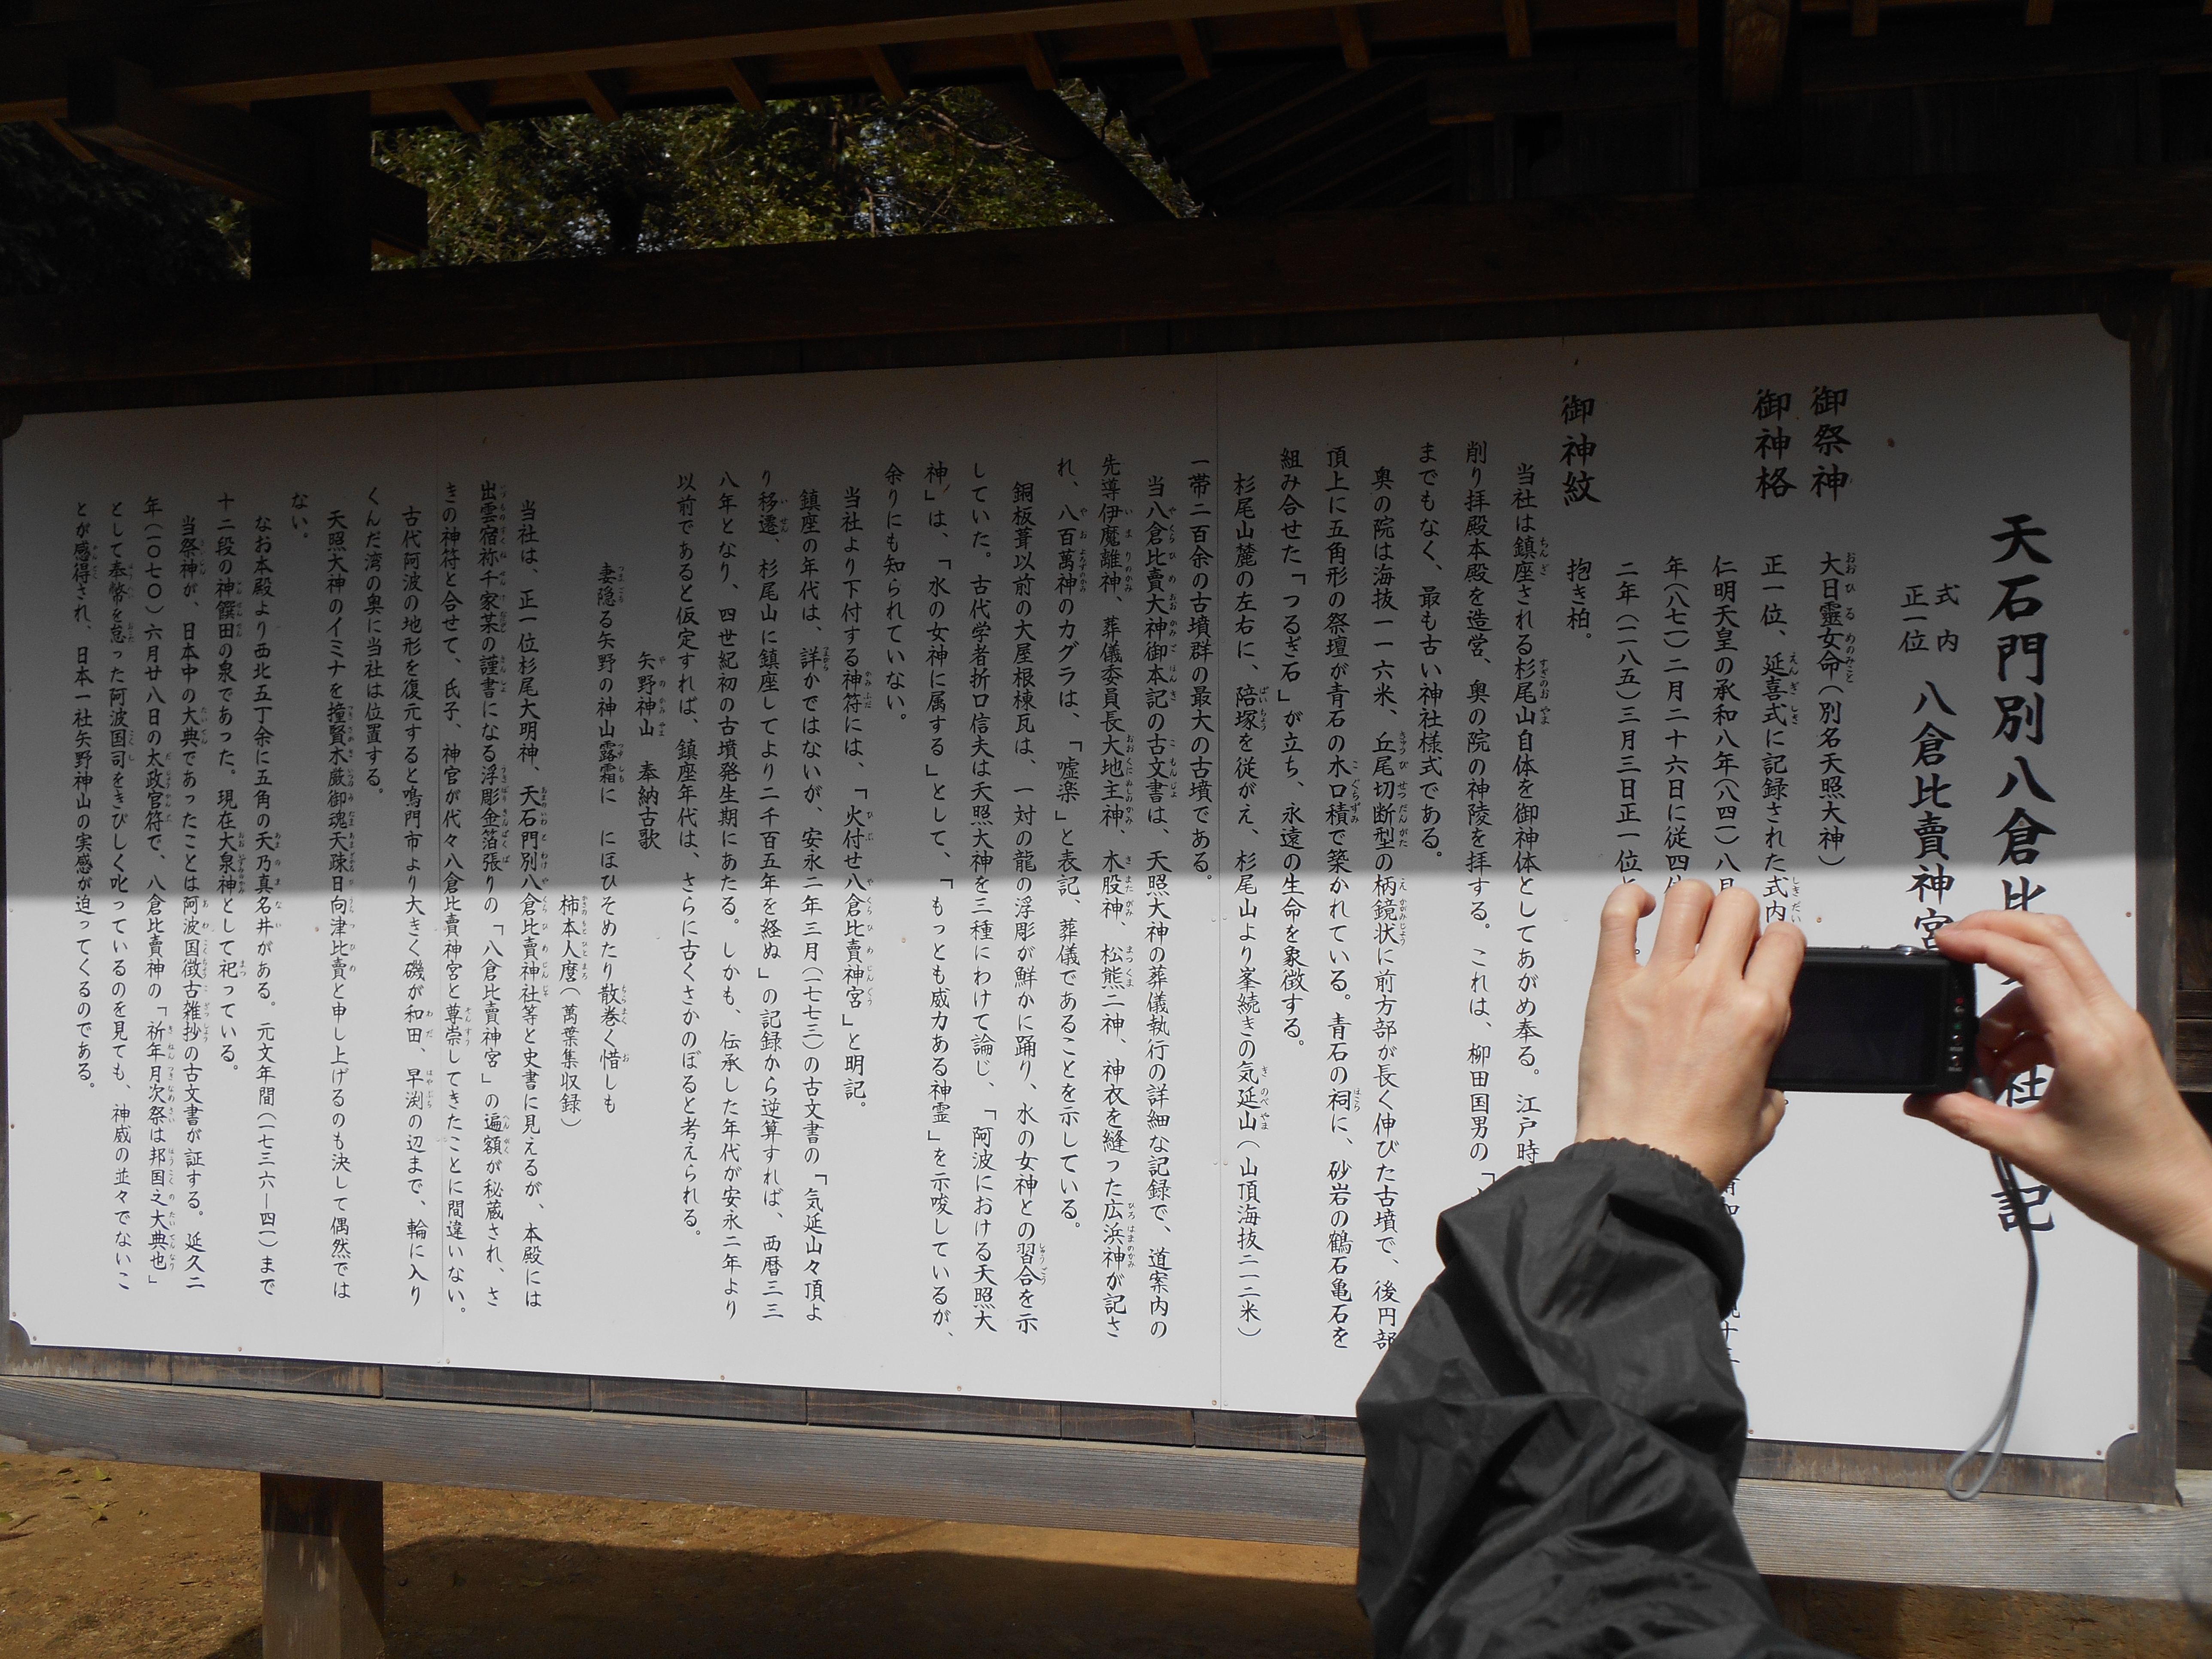 天石門別八倉比 社 記
式内
正一位
八倉比賣神宮
御祭神 大日孁女命（別名天照大神）
御神格 正一位、延喜式に記録された式内
仁明天皇の承和八年（八四一）八月
年（八七一）二月二十六日に従四位
二年（一一八五）三月三日正一位と
御神紋 抱き柏。
当社は鎮座される杉尾山自体を御神体としてあがめ奉る。江戸時
削り拝殿本殿を造営、奥の院の神陵を拝する。これは、柳田国男の「
までもなく、最も古い神社様式である。
奥の院は海抜一一六米、丘尾切断型の柄鏡状に前方部が長く伸びた古墳で、後円部
頂上に五角形の祭壇が青石の木口積で築かれている。青石の祠に、砂岩の鶴石亀石を
組み合せた「つるぎ石」が立ち、永遠の生命を象徴する。
杉尾山麓の左右に、陪塚を従がえ、杉尾山より峯続きの気延山（山頂海抜二一二米）
一帯二百余の古墳群の最大の古墳である。
当八倉比賣大神御本記の古文書は、天照大神の葬儀執行の詳細な記録で、道案内の
先導伊魔離神、葬儀委員長大地主神、木股神、松熊二神、神衣を縫った広浜神が記さ
れ、八百萬神のカグラは、「嘘楽」と表記、葬儀であることを示している。
銅板葺以前の大屋根棟瓦は、一対の龍の浮彫が鮮かに踊り、水の女神との習合を示
していた。古代学者折口信夫は天照大神を三種にわけて論じ、「阿波における天照大
神」は、「水の女神に属する」として、「もっとも威力ある神霊」を示唆しているが、
余りにも知られていない。
当社より下付する神符には、「火付せ八倉比賣神宮」と明記。
鎮座の年代は、詳かではないが、安永二年三月（一七七三）の古文書の「気延山々頂よ
り移遷、杉尾山に鎮座してより二千百五年を経ぬ」の記録から逆算すれば、西暦三三
八年となり、四世紀初の古墳発生期にあたる。しかも、伝承した年代が安永二年より
以前であると仮定すれば、鎮座年代は、さらに古くさかのぼると考えられる。
矢野神山 奉納古歌
妻隠る矢野の神山露霜に にほひそめたり散巻く惜しも
柿本人麿（萬葉集収録）
当社は、正一位杉尾大明神、天石門別八倉比賣神社等と史書に見えるが、本殿には
出雲宿祢千家某の謹書になる浮彫金箔張りの「八倉比賣神宮」の遍額が秘蔵され、さ
きの神符と合せて、氏子、神官が代々八倉比賣神宮と尊崇してきたことに間違いない。
古代阿波の地形を復元すると鳴門市より大きく磯が和田、早渕の辺まで、輪に入り
くんだ湾の奥に当社は位置する。
天照大神のイミナを撞賢木厳御魂天疎日向津比賣と申し上げるのも決して偶然では
ない。
なお本殿より西北五丁余に五角の天乃真名井がある。元文年間（一七三六―四一）まで
十二段の神饌田の泉であった。現在大泉神として祀っている。
当祭神が、日本中の大典であったことは阿波国徴古雑抄の古文書が証する。延久二
年（一〇七〇）六月廿八日の太政官符で、八倉比賣神の「祈年月次祭は邦国之大典也」
として奉幣を怠った阿波国司をきびしく叱っているのを見ても、神威の並々でないこ
とが感得され、日本一社矢野神山の実感が迫ってくるのである。